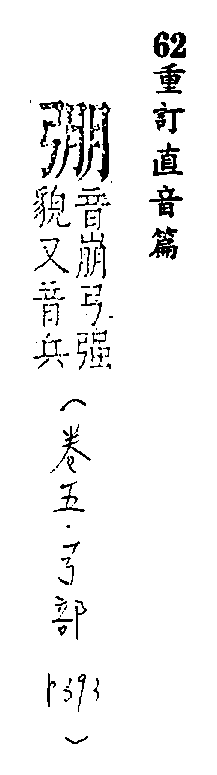 62重訂直音篇
弸
音崩弓强
貌又音兵
（卷五．弓部 p393）